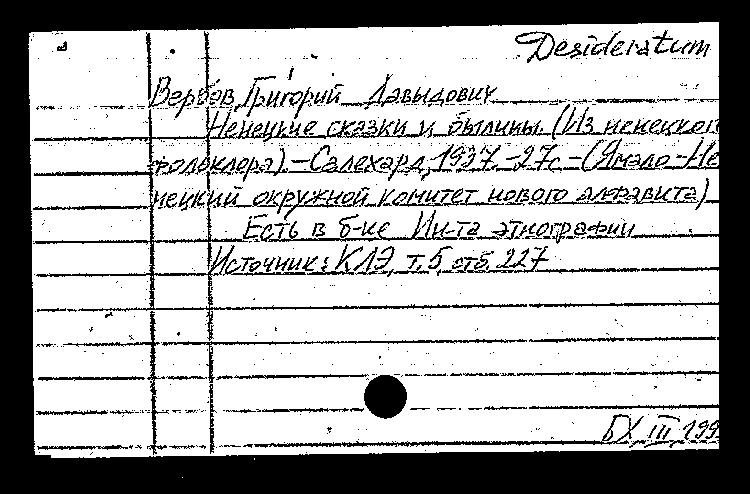 Desideratum
Вербов, Григорий Давыдович
Ненецкие сказки и былины. (Из ненецкого
фольклора). – Салехард, 1937. – 27с. – (Ямало-Не
нецкий окружной комитет нового алфавита)
Есть в б-ке Ин-та этнографии
Источник: КЛЭ, т.5, стб. 227
БХ, III, 199